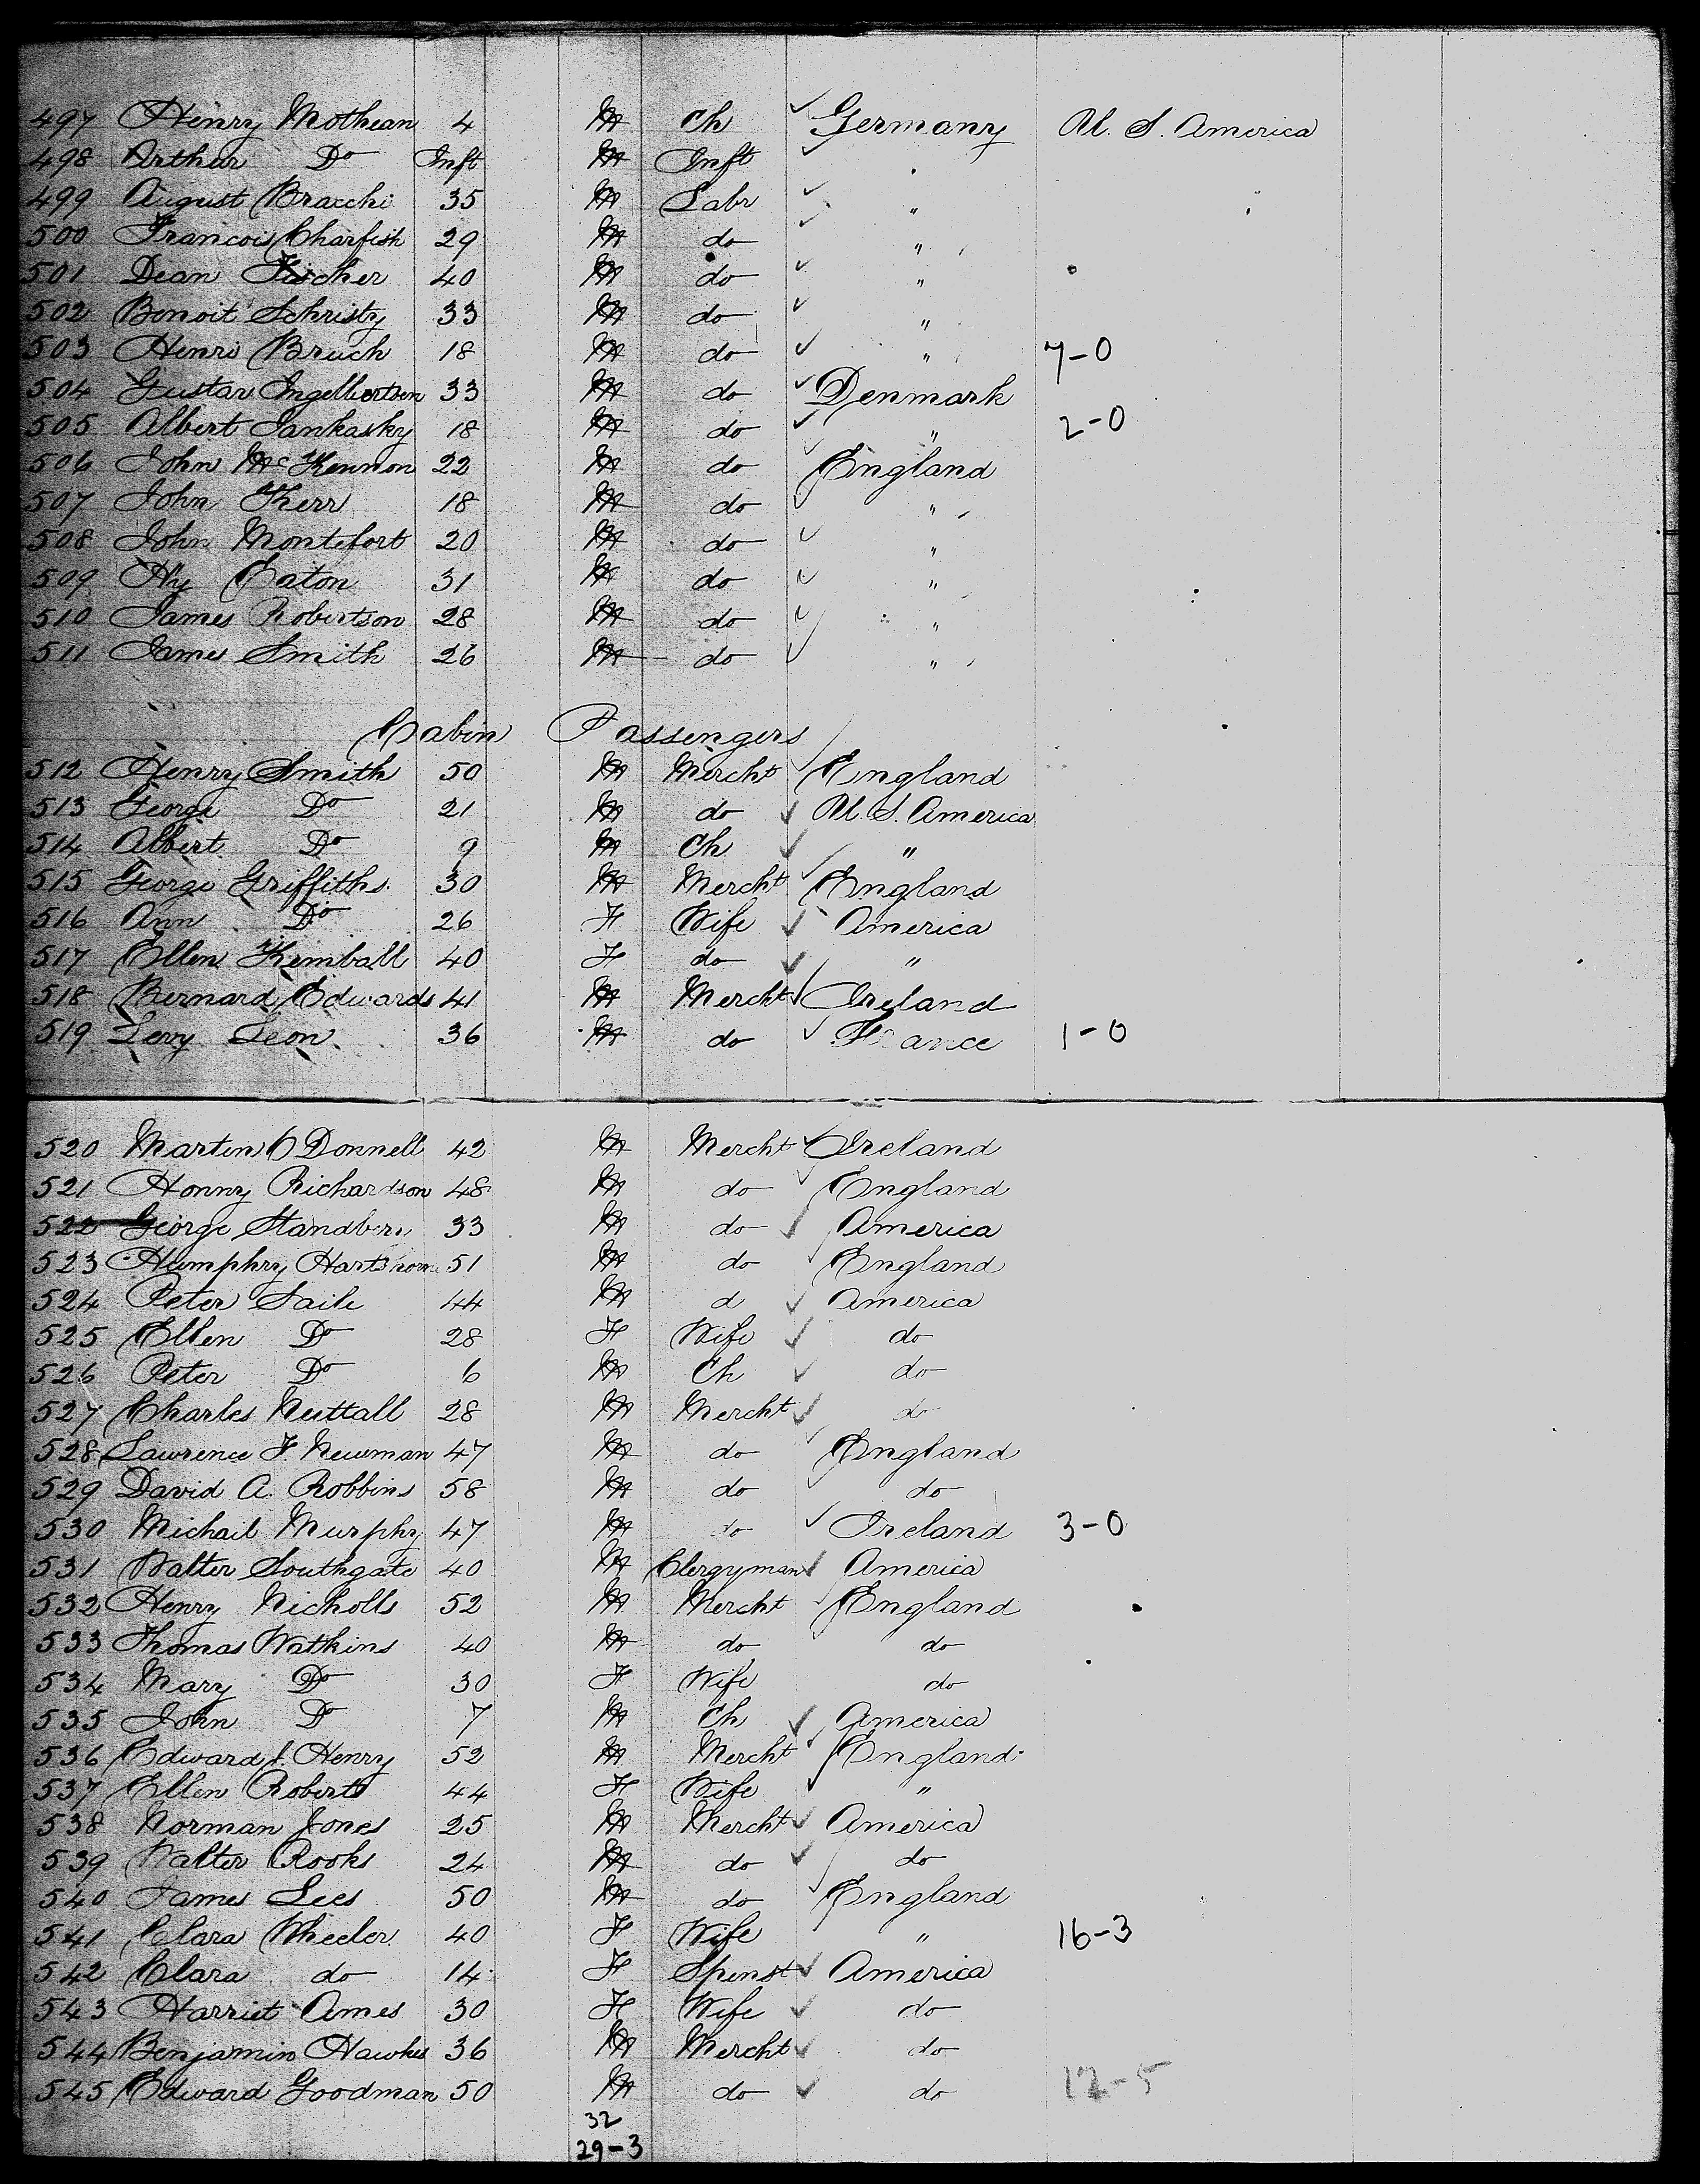 497 Henry Mothean 4 M Ch Germany U. S. America
498 Arthur Do Inft M Inft "
499 August Bracchi 35 M Labr "
500 Francois Charfish 29 M do "
501 Dean Fischer 40 M do "
502 Benoit Schristy 33 M do "
503 Henri Bruch 18 M do " 7-0
504 Gustav Ingelbertsen 33 M do Denmark
505 Albert Jankasky 18 M do " 2-0
506 John McKennon 22 M do England
507 John Kerr 18 M do "
508 John Montefort 20 M do "
509 Hy Eaton 31 M do "
510 James Robertson 28 M do "
511 James Smith 26 M do "
Cabin Passengers
512 Henry Smith 50 M Mercht England
513 George Do 21 M do U. S. America
514 Albert Do 9 M Ch "
515 George Griffiths 30 M Mercht England
516 Ann Do 26 F Wife America
517 Ellen Kemball 40 F do "
518 Bernard Edwards 41 M Mercht Ireland
519 Levy Leon 36 M do France 1-0
520 Martin O Donnell 42 M Mercht Ireland
521 Honny Richardson 48 M do England
522 George Standbern 33 M do America
523 Humphry Hartshorne 51 M do England
524 Peter Saile 44 M d America
525 Ellen Do 28 F Wife do
526 Peter Do 6 M Ch do
527 Charles Nuttall 28 M Mercht do
528 Lawrence F. Newman 47 M do England
529 David A. Robbins 58 M do do
530 Michail Murphy 47 M do Ireland 3-0
531 Walter Southgate 40 M Clergyman America
532 Henry Nicholls 52 M Mercht England
533 Thomas Watkins 40 M do do
534 Mary Do 30 F Wife do
535 John Do 7 M Ch America
536 Edward J. Henry 52 M Mercht England
537 Ellen Roberts 44 F Wife "
538 Norman Jones 25 M Mercht America
539 Walter Rooks 24 M do do
540 James Lees 50 M do England
541 Clara Wheeler 40 F Wife " 16-3
542 Clara do 14 F Spinst America
543 Harriet Ames 30 F Wife do
544 Benjamin Hawkes 36 M Mercht do
545 Edward Goodman 50 M do do 12-5
32
29-3